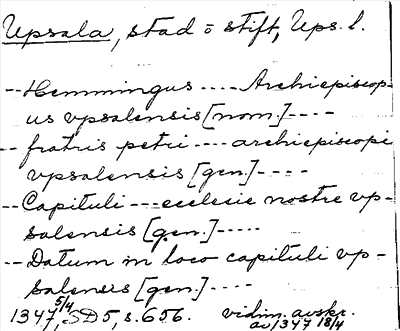 Upsala, stad o stift, Ups. l.
-- Hemmingus .... Archiepiscop-
us vpsalensis [nom.] ----
-- fratris petri ---- archiepiscopi
vpsalensis [gen.] ----
-- Capituli --- ecclesie nostre vp-
salensis [gen.] -----
-- Datum in loco capituli vp-
salensis [gen.] ----
1347 5/4, SD5, s. 656. vidim. avskr.
av 1347 18/4